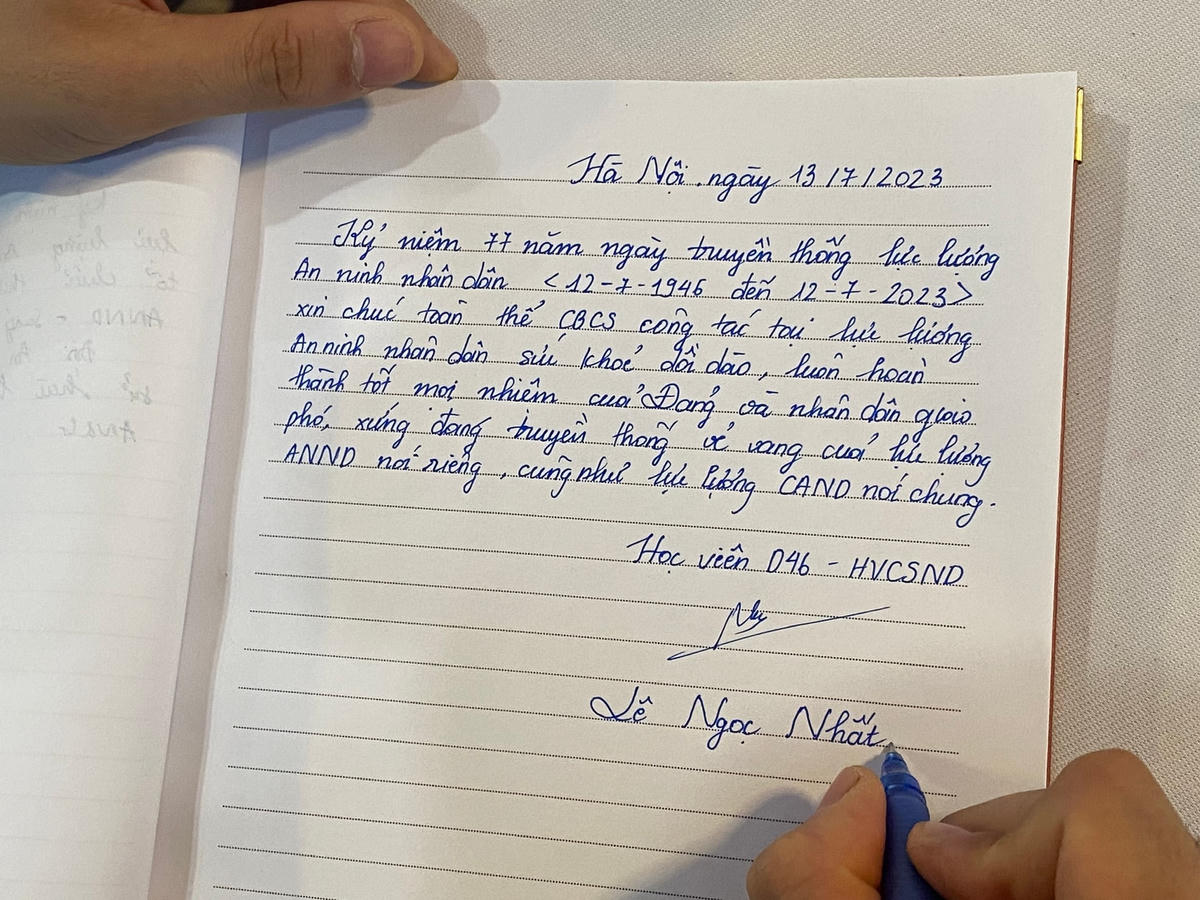 Hà Nội, ngày 13/7/2023
Kỷ niệm 77 năm ngày truyền thống lực lượng
An ninh nhân dân <12-7-1946 đến 12-7-2023>
xin chúc toàn thể CBCS công tác tại lực lượng
An ninh nhân dân sức khoẻ dồi dào, luôn hoàn
thành tốt mọi nhiêm của Đảng và nhân dân giao
phó, xứng đáng truyền thống vẻ vang của lực lượng
ANND nói riêng, cũng như lực lượng CAND nói chung.
Học viên D46 - HVCSND
Lê Ngọc Nhất